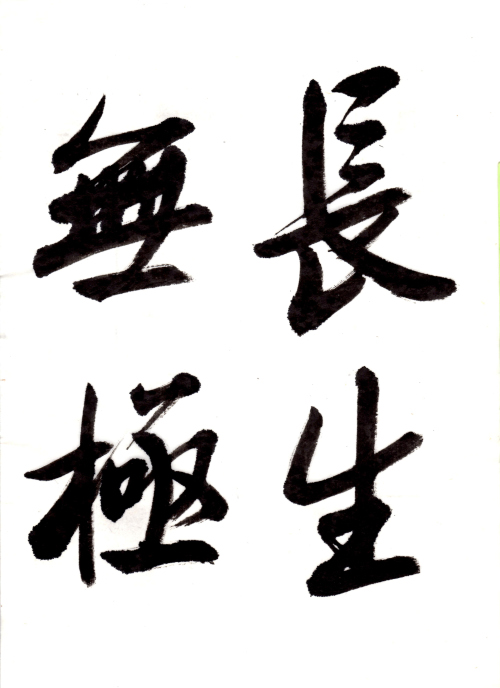 長生
無極